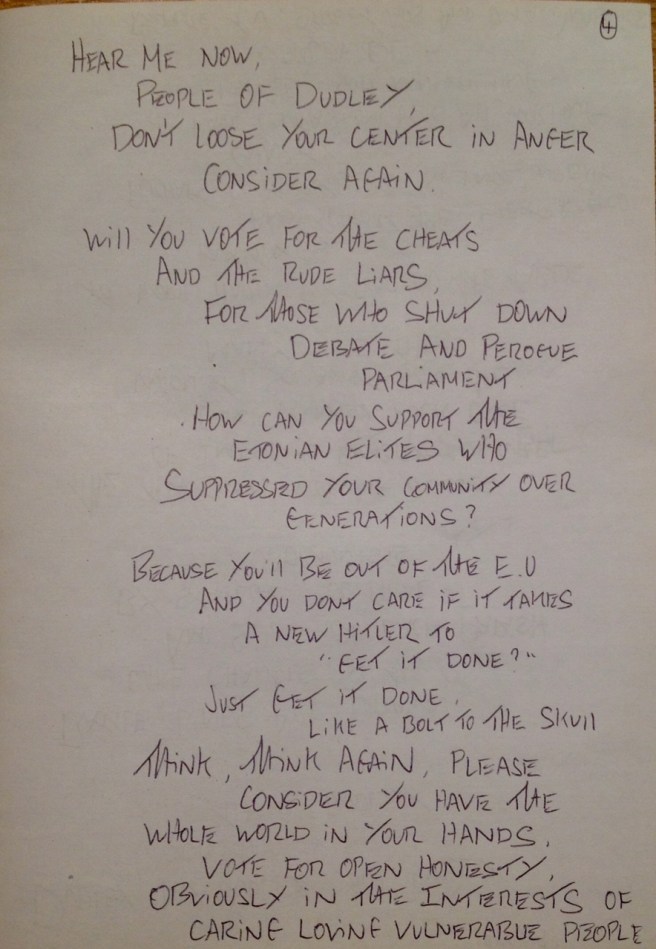 4
HEAR ME NOW,
PEOPLE OF DUDLEY,
DON'T LOOSE YOUR CENTER IN ANGER
CONSIDER AGAIN.
Will YOU VOTE FOR THE CHEATS
AND THE RUDE LIARS,
FOR THOSE WHO SHUT DOWN
DEBATE AND PEROGUE
PARLIAMENT
HOW CAN YOU SUPPORT THE
ETONIAN ELITES WHO
SUPPRESSED YOUR COMMUNITY OVER
GENERATIONS?
BECAUSE YOU'll BE OUT OF THE E.U
AND YOU DONT CARE IF IT TAKES
A NEW HITLER TO
"GET IT DONE?"
JUST GET IT DONE.
LIKE A BOLT TO THE SKUll
THINK, THINK AGAIN, PLEASE
CONSIDER YOU HAVE THE
WHOLE WORLD IN YOUR HANDS,
VOTE FOR OPEN HONESTY,
OBVIOUSLY IN THE INTERESTS OF
CARING LOVING VULNERABLE PEOPLE